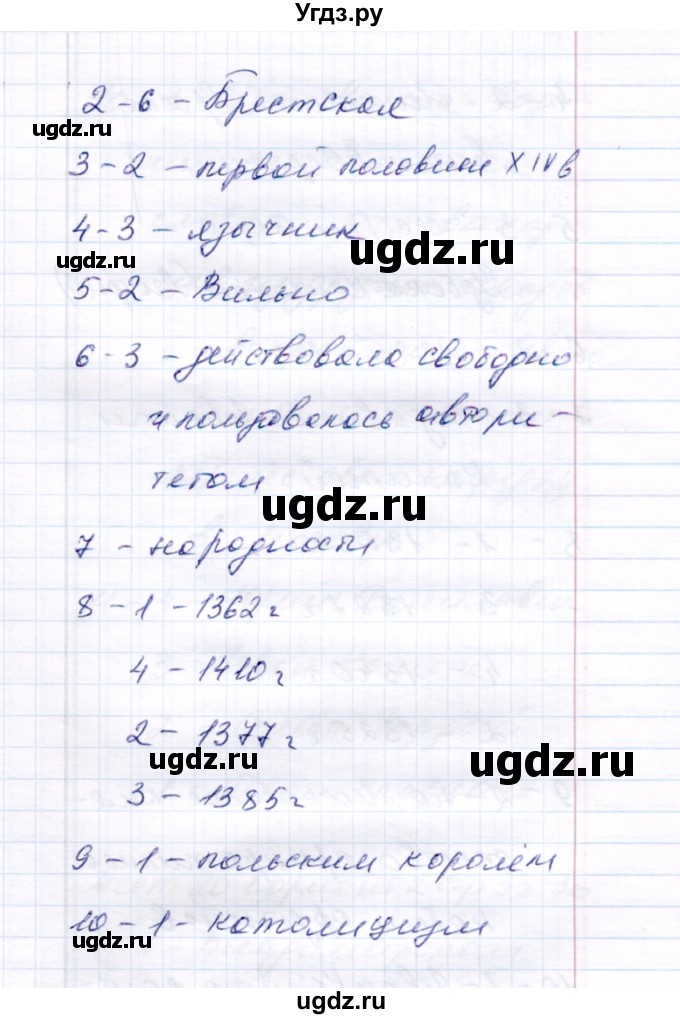 Угдз.ру
2-6 - Брестская
ugdz.ru
3-2 - первой половине XIV в
4-3 - язычник
ugdz.ru
ugdz.ru
5-2 - Вильно
6-3 - действовала свободно
и пользовалась автори-
тетом
ugdz.ru
7 - народности
8-1-1362 г
4-1410 г
2-1377 г
ugdz.ru
ugdz.ru
3-1385 г
9-1-польским королём
10-1-католицизм
ugdz.ru
ugdz.ru